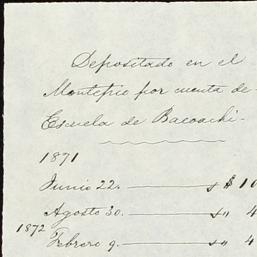 Depositado en el
Montepio por cuenta de
Escuela de Bacoachi-
1871
Junio 22. — $ 10
Agosto 30. — " 4
1872
Febrero 9. — " 4